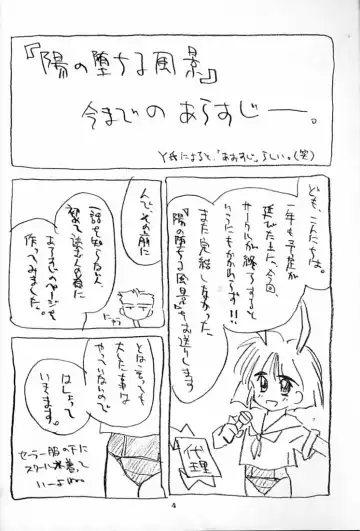 『陽の堕ちる風景』
今までのあらすじー。
Y氏によると、「あおすじ」らしい。(笑)
ども、こんにちは。
一年も予定が
延びた上に、今回、
サークルが終了すると
いうにもかかわらず!!
また完結しなかった
『陽の堕ちる風景』をお送りします
代理
んで、その前に
一話を知らない人、
忘れて
あらすじのページを
作ってみました。
とは言っても
大した事は
やっていないので
はしょって
いきます。
セーラー服の下に
スクール水着って
いーよね
4